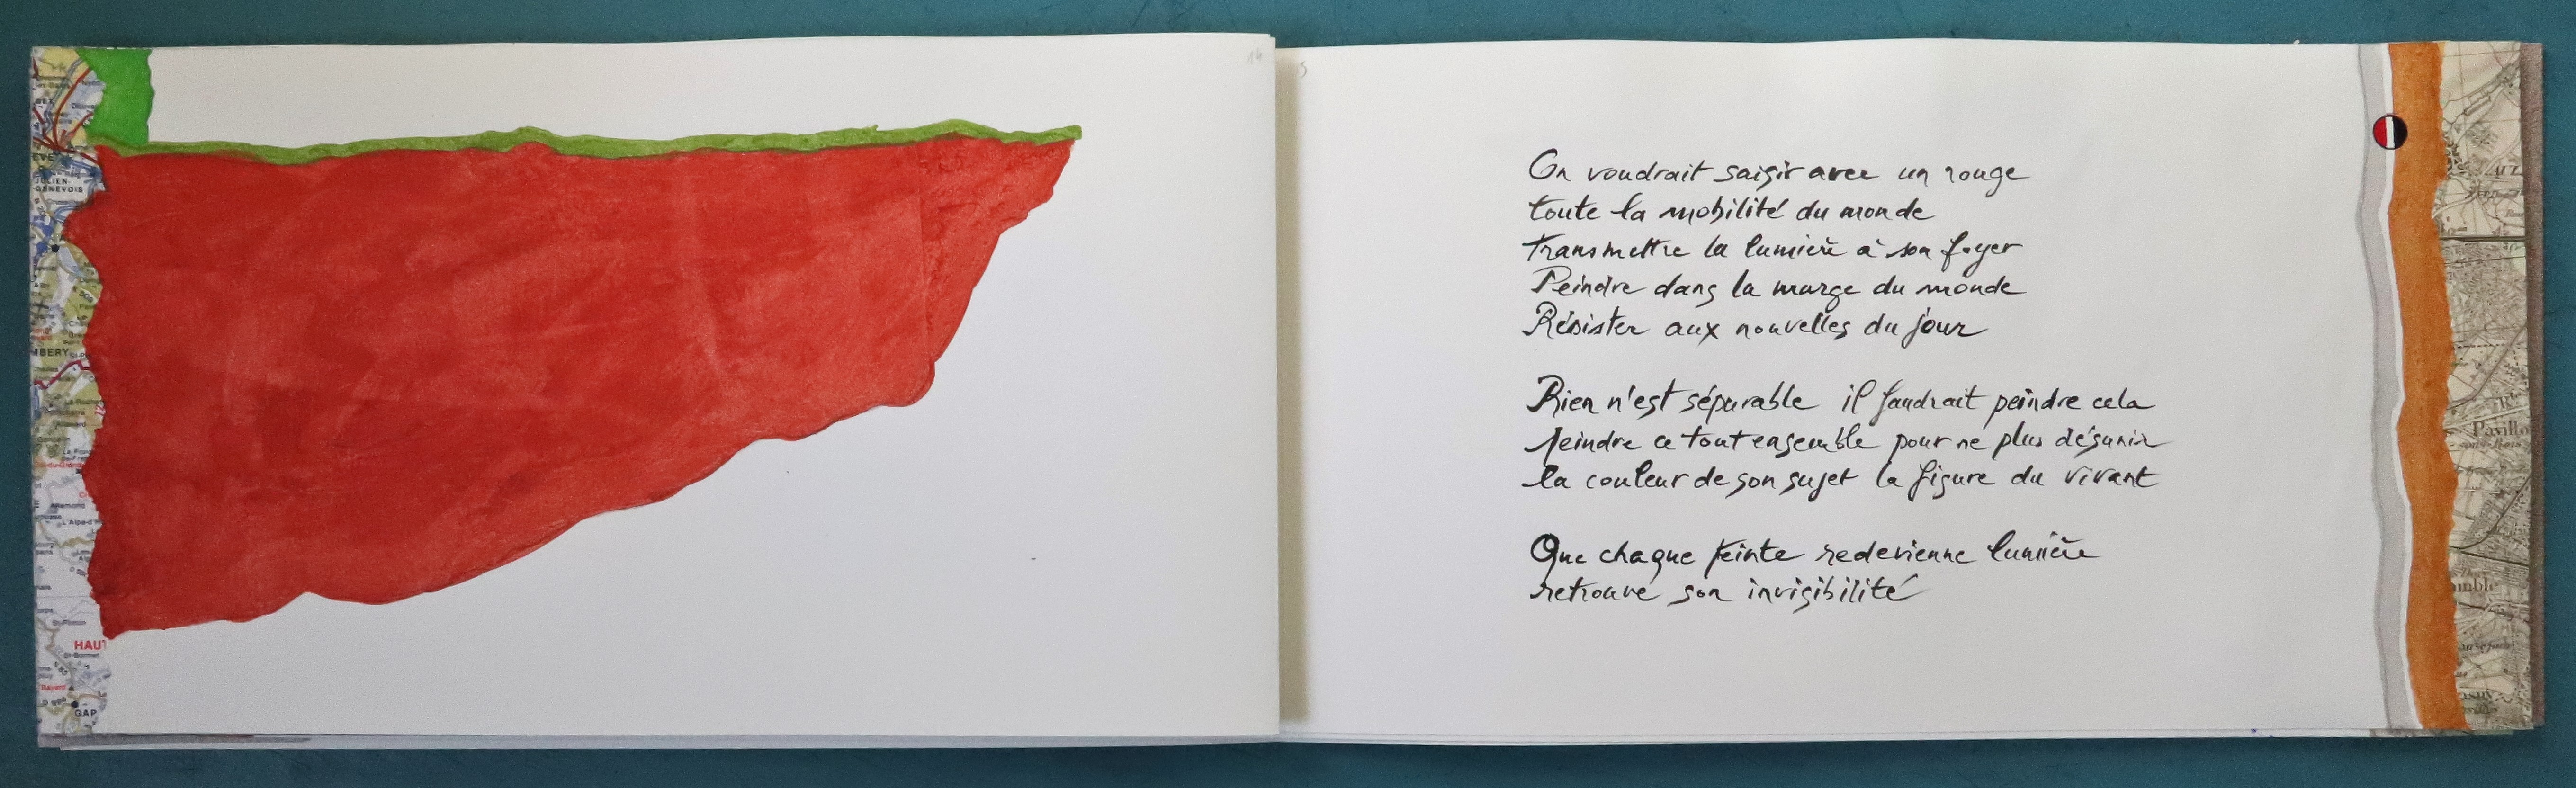 14
5
On voudrait saisir avec un rouge
toute la mobilité du monde
Transmettre la lumière à son foyer
Peindre dans la marge du monde
Résister aux nouvelles du jour
Rien n'est séparable il faudrait peindre cela
peindre ce tout ensemble pour ne plus désunir
la couleur de son sujet la figure du vivant
Que chaque teinte redevienne lumière
retrouve son invisibilité
GEX
JULIEN-
GENEVOIS
MBERY
HAUT
St-Bonnet
Bayard
GAP
Pavillo